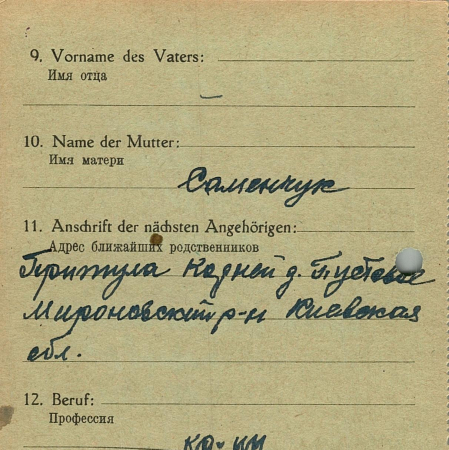 9. Vorname des Vaters:
Имя отца
—
10. Name der Mutter:
Имя матери
Саменчук
11. Anschrift der nächsten Angehörigen:
Адрес ближайших родственников
Притула Карней д. Пустовое
Мироновский р-н Киевская
обл.
12. Beruf:
Профессия